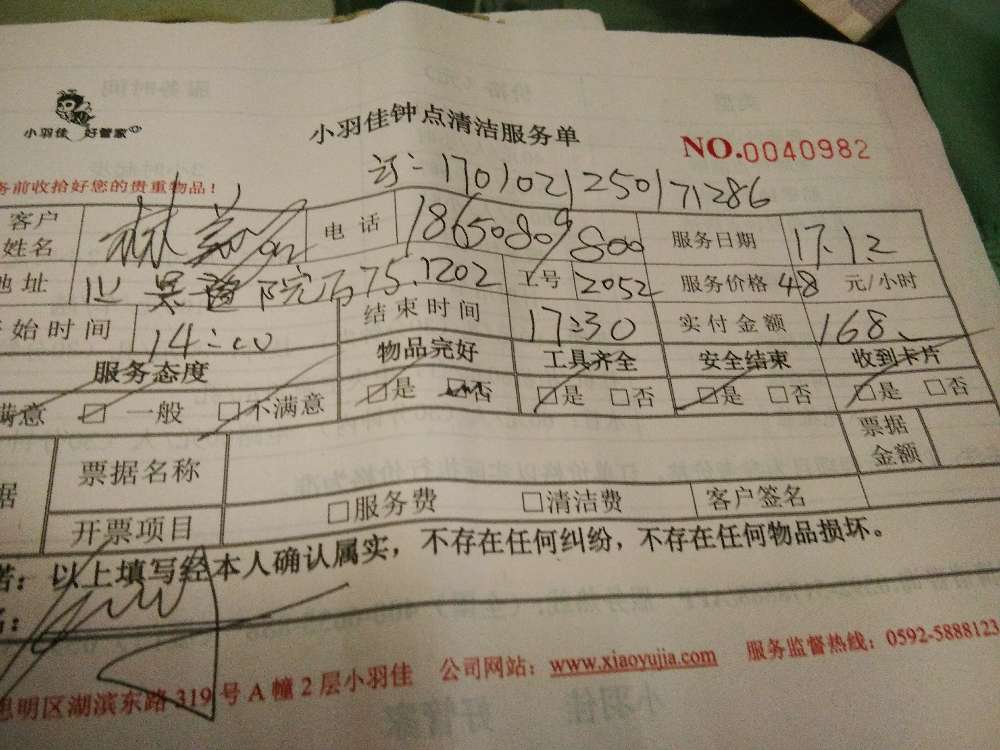 小羽佳 好管家
小羽佳钟点清洁服务单
NO.0040982
务前收拾好您的贵重物品!
订:1701021250171286
客户姓名 林 电话 18650809800 服务日期 17.1.2
地址 院 75.1202 工号 2052 服务价格 48 元/小时
开始时间 14:00 结束时间 17:30 实付金额 168
服务态度 物品完好 工具齐全 安全结束 收到卡片
满意 □一般 □不满意 □是 □否 □是 □否 □是 □否 □是 □否
据 票据名称 票据金额
开票项目 □服务费 □清洁费 客户签名
诺:以上填写经本人确认属实,不存在任何纠纷,不存在任何物品损坏。
名:
思明区湖滨东路319号A幢2层小羽佳 公司网站:www.xiaoyujia.com 服务监督热线:0592-5888123
小羽佳 好管家